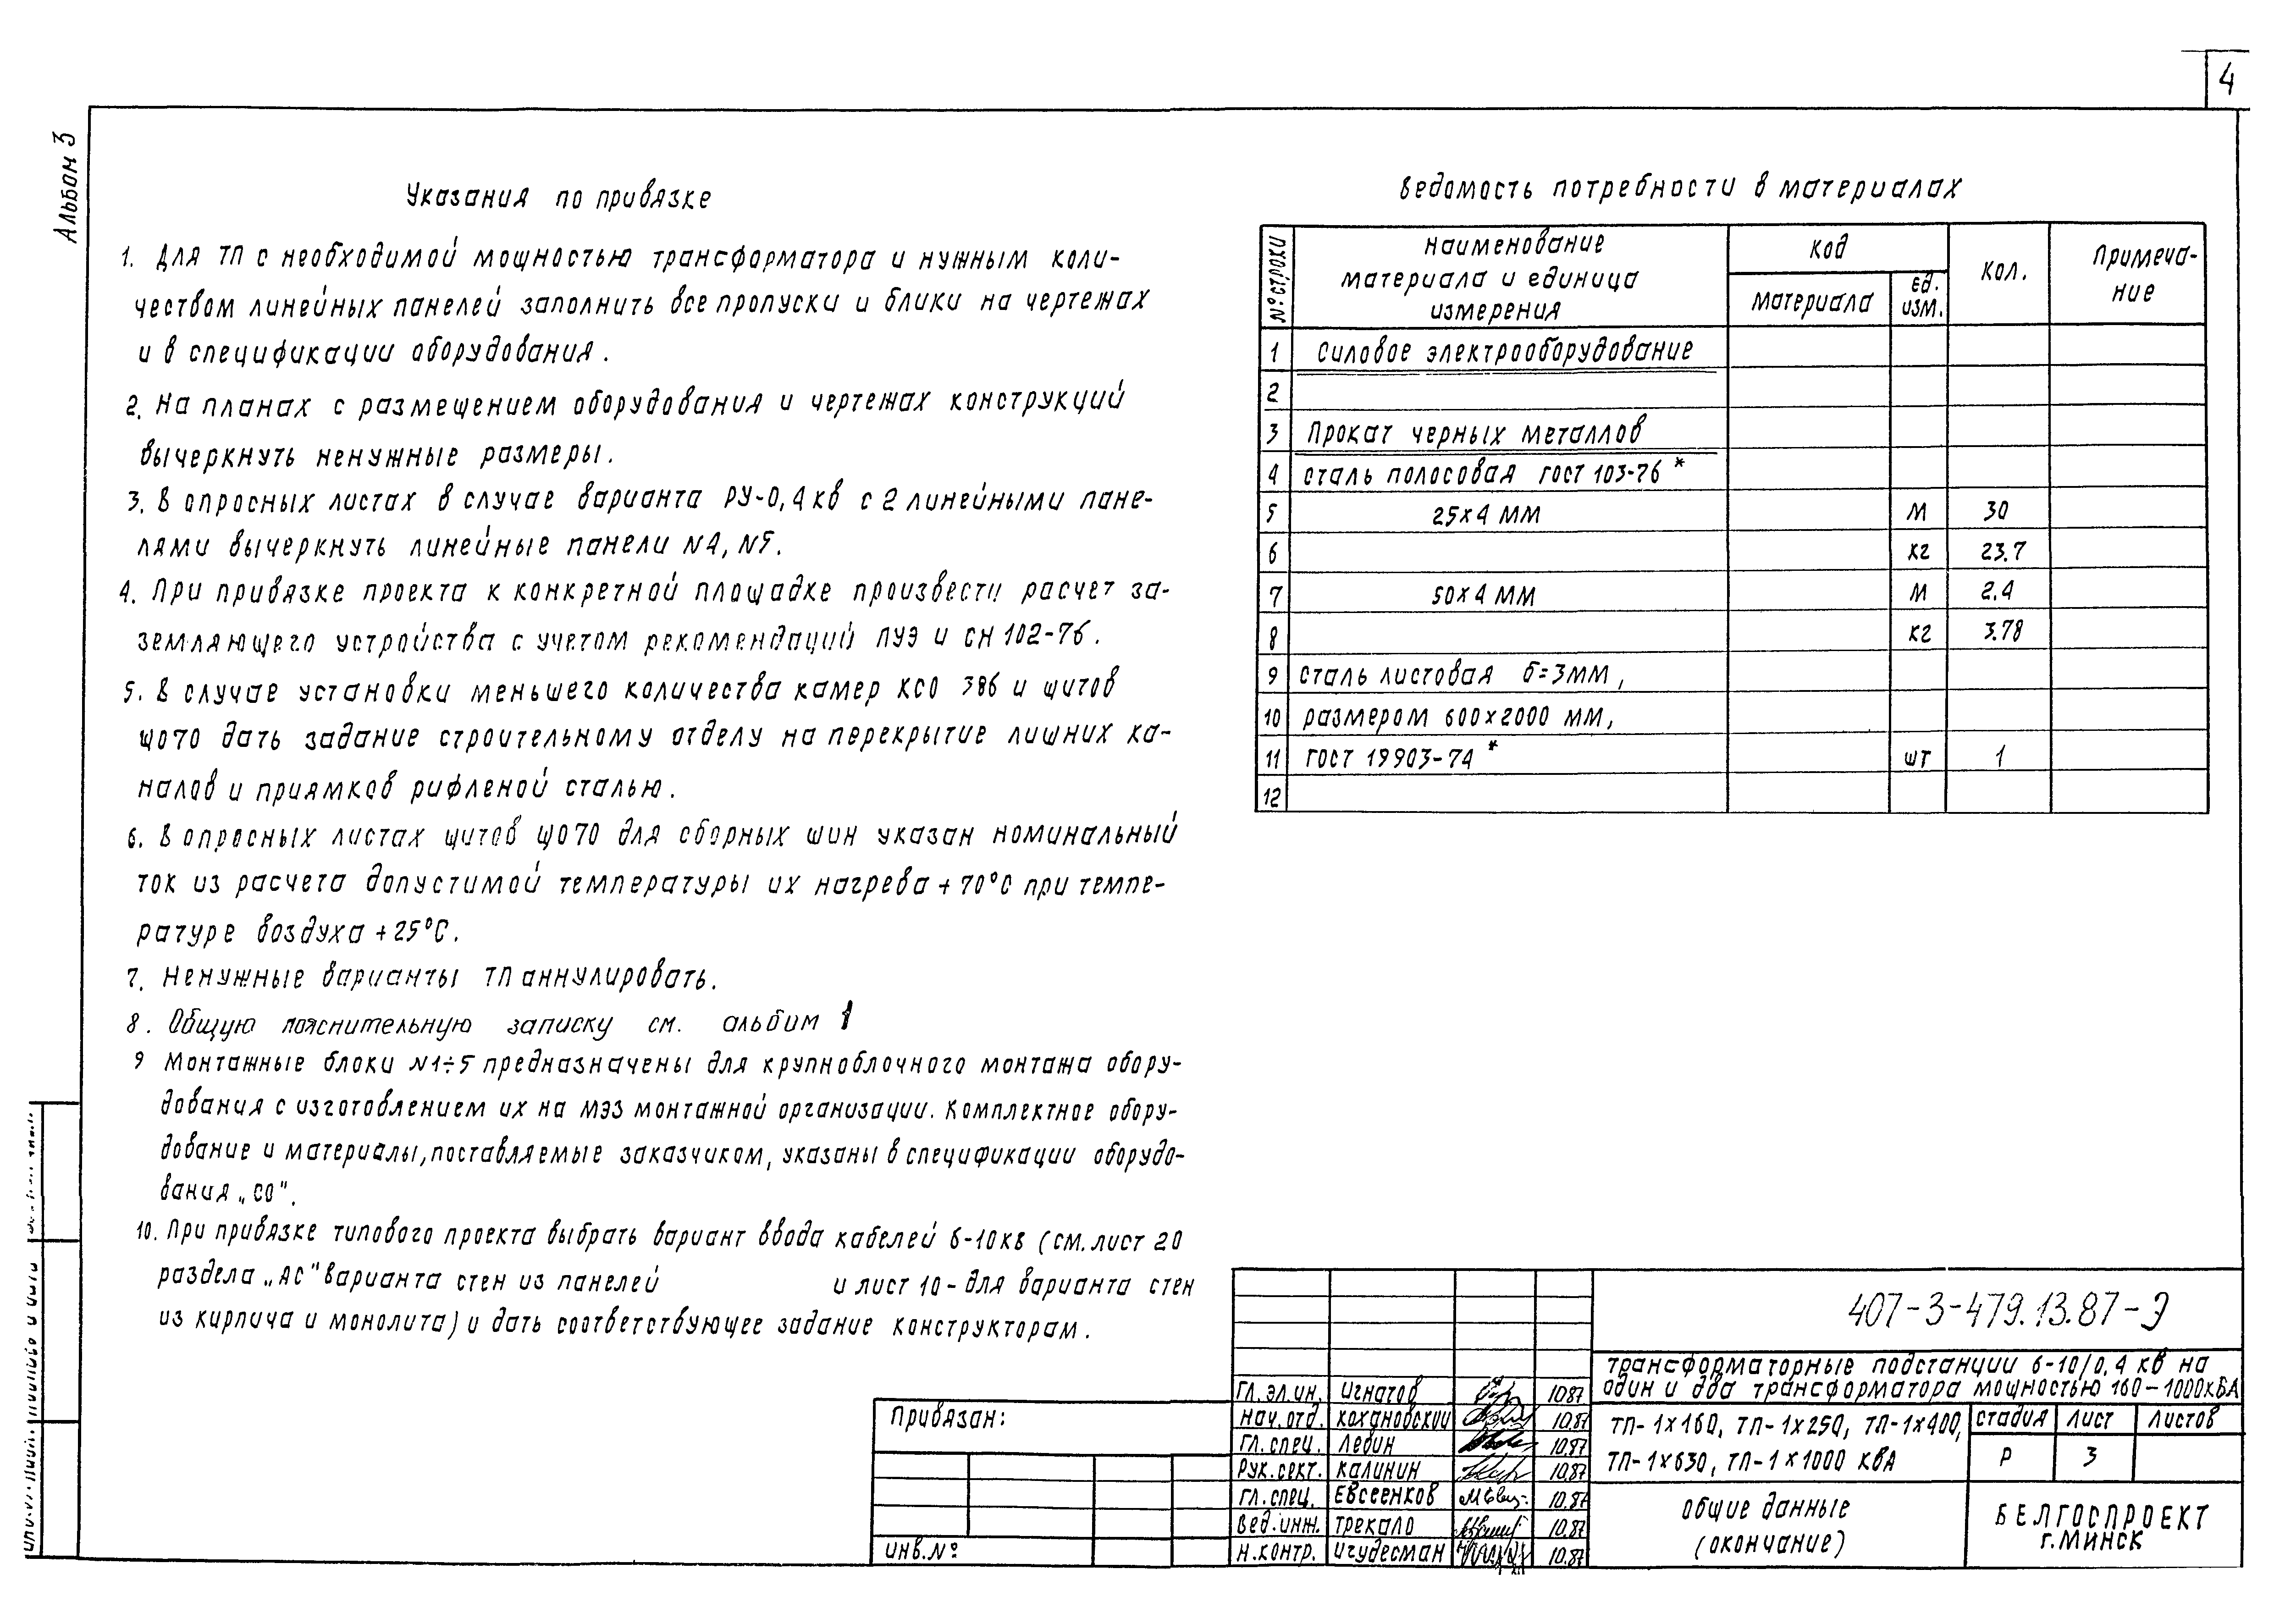 4
Альбом 3
Указания по привязке
1. Для ТП с необходимой мощностью трансформатора и нужным коли-
чеством линейных панелей заполнить все пропуски и блики на чертежах
и в спецификации оборудования.
2. На планах с размещением оборудования и чертежах конструкций
вычеркнуть ненужные размеры.
3. В опросных листах в случае варианта РУ-0,4кв с 2 линейными пане-
лями вычеркнуть линейные панели N4, N5.
4. При привязке проекта к конкретной площадке произвести расчет за-
земляющего устройства с учетом рекомендаций ПУЭ и СН 102-76.
5. В случае установки меньшего количества камер КСО 386 и щитов
ЩО70 дать задание строительному отделу на перекрытие лишних ка-
налов и приямков рифленой сталью.
6. В опросных листах щитов ЩО70 для сборных шин указан номинальный
ток из расчета допустимой температуры их нагрева +70°С при темпе-
ратуре воздуха +25°С.
7. Ненужные варианты ТП аннулировать.
8. Общую пояснительную записку см. альбом 1
9 Монтажные блоки N1÷5 предназначены для крупноблочного монтажа обору-
дования с изготовлением их на МЭЗ монтажной организации. Комплектное обору-
дование и материалы, поставляемые заказчиком, указаны в спецификации оборудо-
вания „СО".
10. При привязке типового проекта выбрать вариант ввода кабелей 6-10кв (см. лист 20
раздела „АС" варианта стен из панелей и лист 10 - для варианта стен
из кирпича и монолита) и дать соответствующее задание конструкторам.
Ведомость потребности в материалах
№ строки
Наименование материала и единица измерения
Код
Кол.
Примеча-
ние
материала
ед. изм.
1 Силовое электрооборудование
2
3 Прокат черных металлов
4 Сталь полосовая ГОСТ 103-76 *
5 25х4 мм м 30
6 кг 23.7
7 50х4 мм м 2.4
8 кг 3.78
9 Сталь листовая б=3мм,
10 размером 600х2000 мм,
11 ГОСТ 19903-74 * шт 1
12
Привязан:
Инв.№
Гл. эл. ин. Игнатов 10.87
Нач. отд. Кохановский 10.87
Гл. спец. Левин 10.87
Рук. сект. Калинин 10.87
Гл. спец. Евсеенков 10.87
Вед. инж. Трекало 10.87
Н. контр. Ичудесман 10.87
407-3-479.13.87-Э
Трансформаторные подстанции 6-10/0,4 кв на
один и два трансформатора мощностью 160-1000кВА
ТП-1х160, ТП-1х250, ТП-1х400,
ТП-1х630, ТП-1х1000 кВА
стадия лист листов
Р 3
Общие данные
(окончание)
БЕЛГОСПРОЕКТ
г. Минск